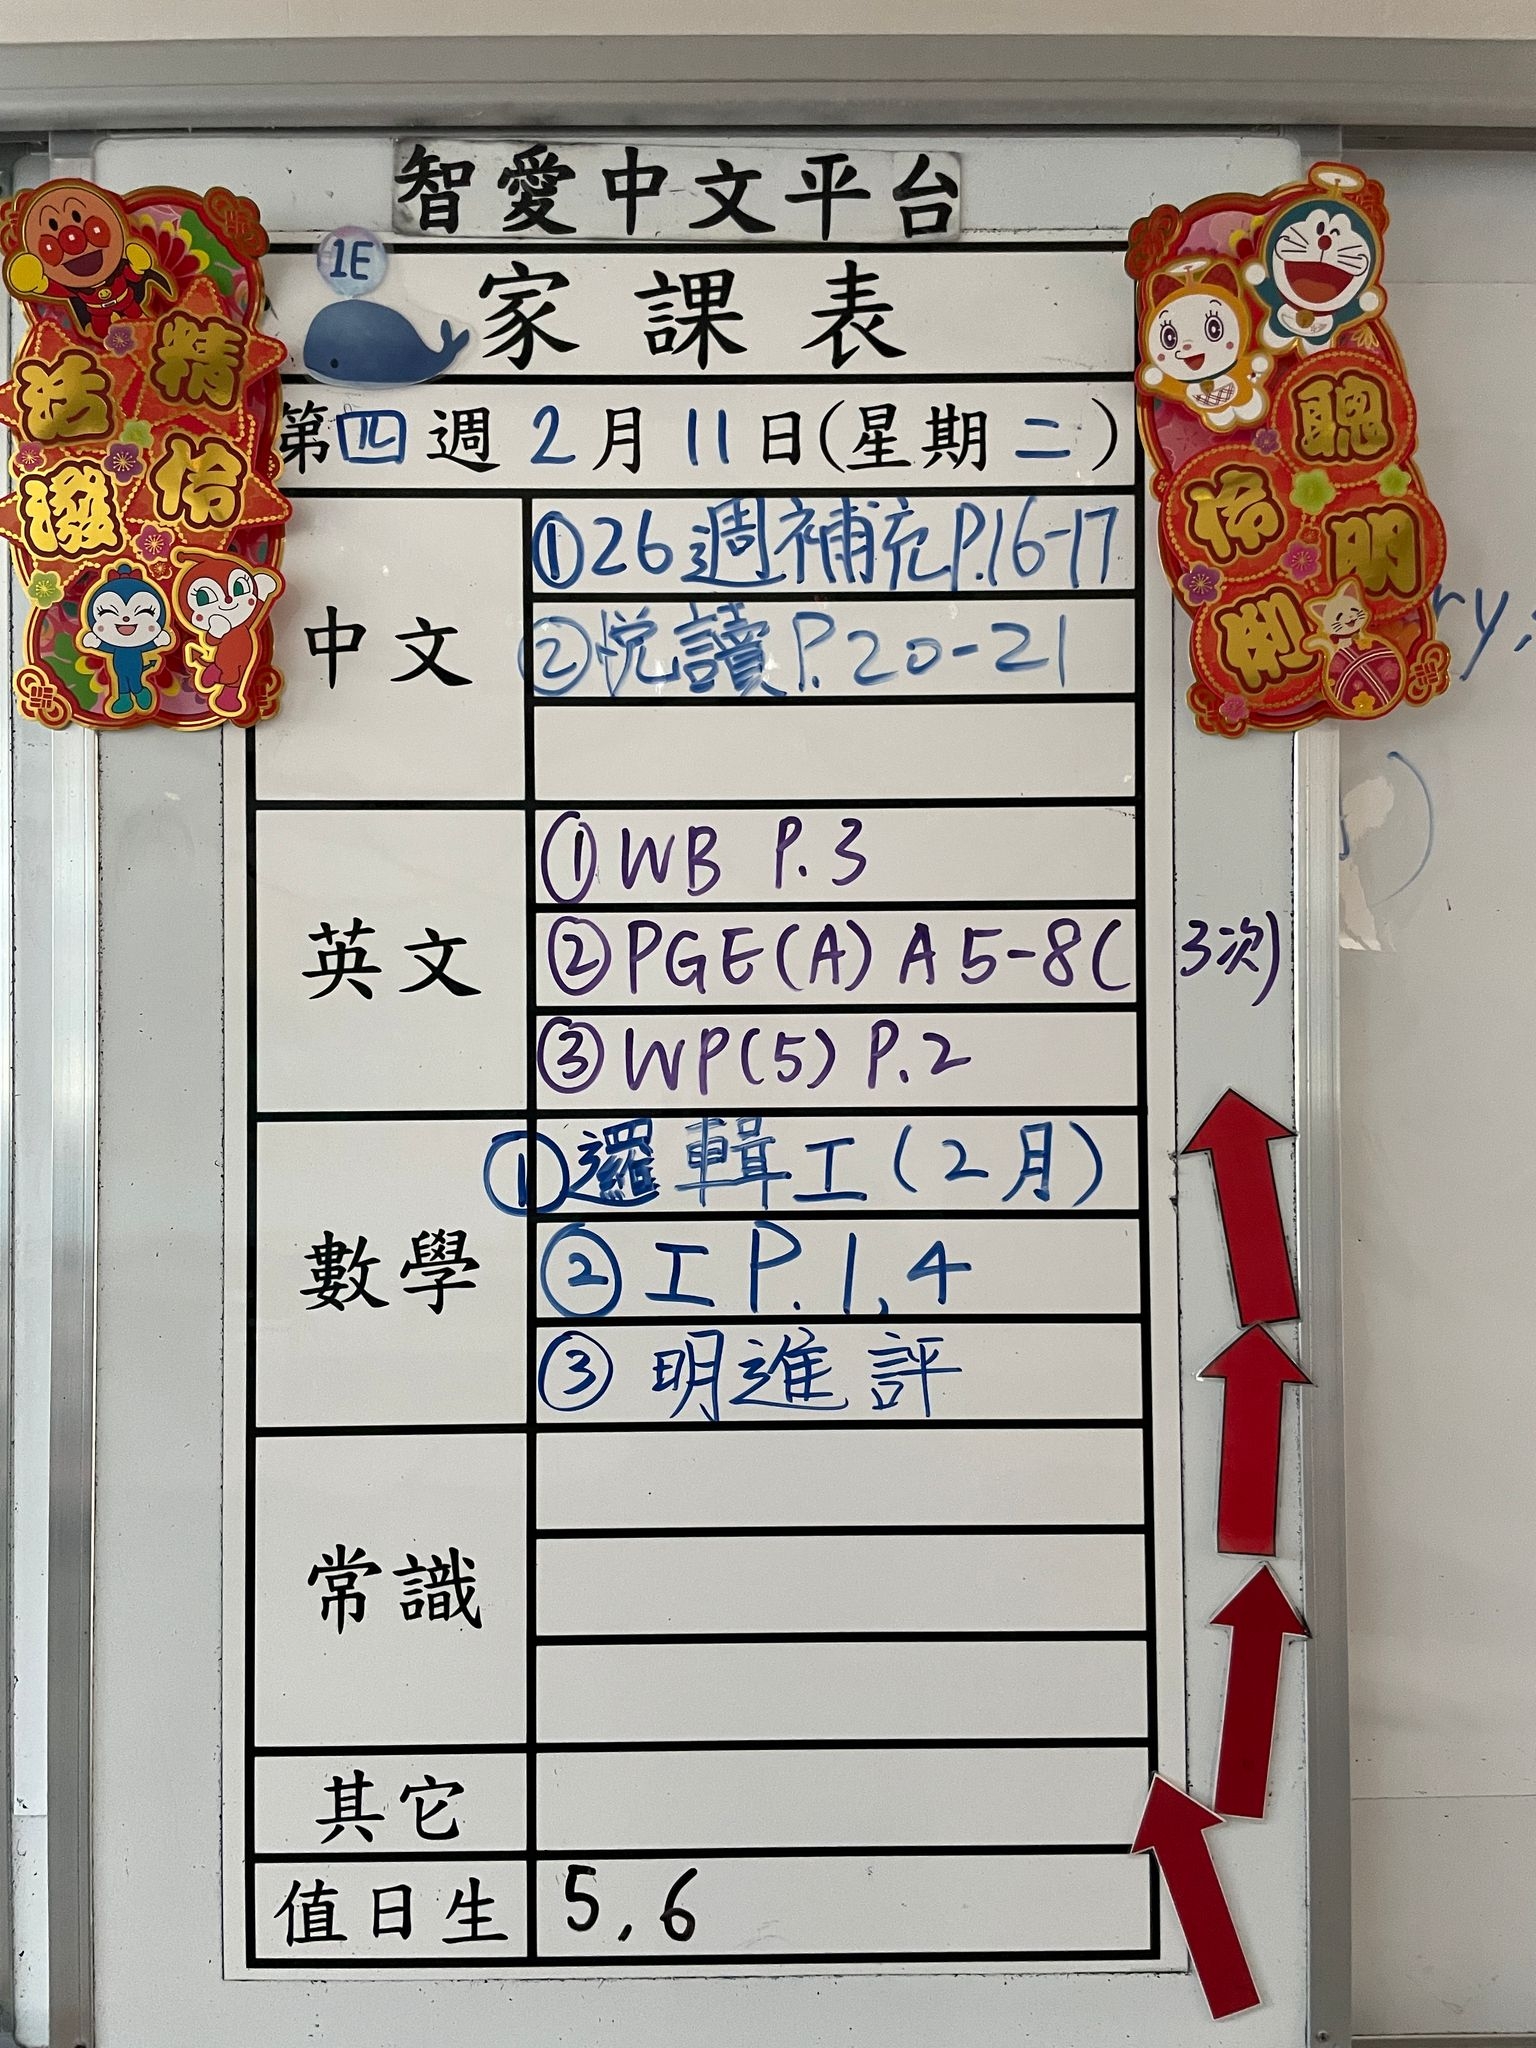 智愛中文平台
1E
家課表
第四週2月11日(星期二)
精活伶潑
聰明伶俐
中文
①26週補充P.16-17
②悅讀P.20-21
英文
①WB P.3
②PGE(A) A5-8(3次)
③WP(5) P.2
數學
①邏輯工(2月)
②工P.1,4
③明進評
常識
其它
值日生
5,6
ry,
)